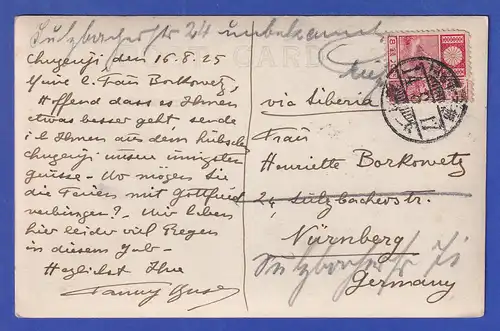 Sulzbacherstr 24 unbekannt
POST CARD
Chuzenji den 16.8.25
Meine l. Frau Borkowetz,
Hoffend dass es Ihnen
etwas besser geht sende
ich Ihnen aus dem hübschen
Chuzenji unsere innigsten
Grüsse. Wo mögen Sie
die Ferien mit Gottfried
verbringen? Wir haben
hier leider viel Regen
in diesem Jahr.
Herzlichst Ihre
Fanny
via Siberia
Frau
Henriette Borkowetz
24, Sulzbacherstr.
Nürnberg
Sulzbacherstr
Germany
14.8.17